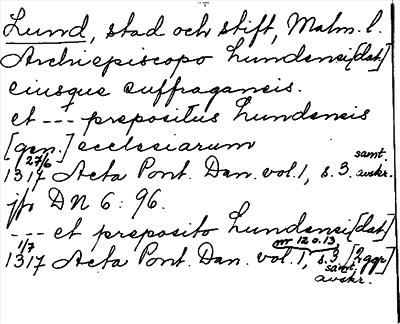 Lund, stad och stift, Malm. l.
Archiepiscopo Lundensi [dat]
eiusque suffraganeis.
et --- prepositus Lundensis
[gen.] ecclesiarum
27/6
1317 Acta Pont. Dan. vol. 1, s. 3. samt. avskr.
jfr DN 6: 96.
--- et preposito Lundensi [dat]
1/7 nr 12 o. 13
1317 Acta Pont. Dan. vol. 1, s. 3 [2 ggr]
samt. avskr.